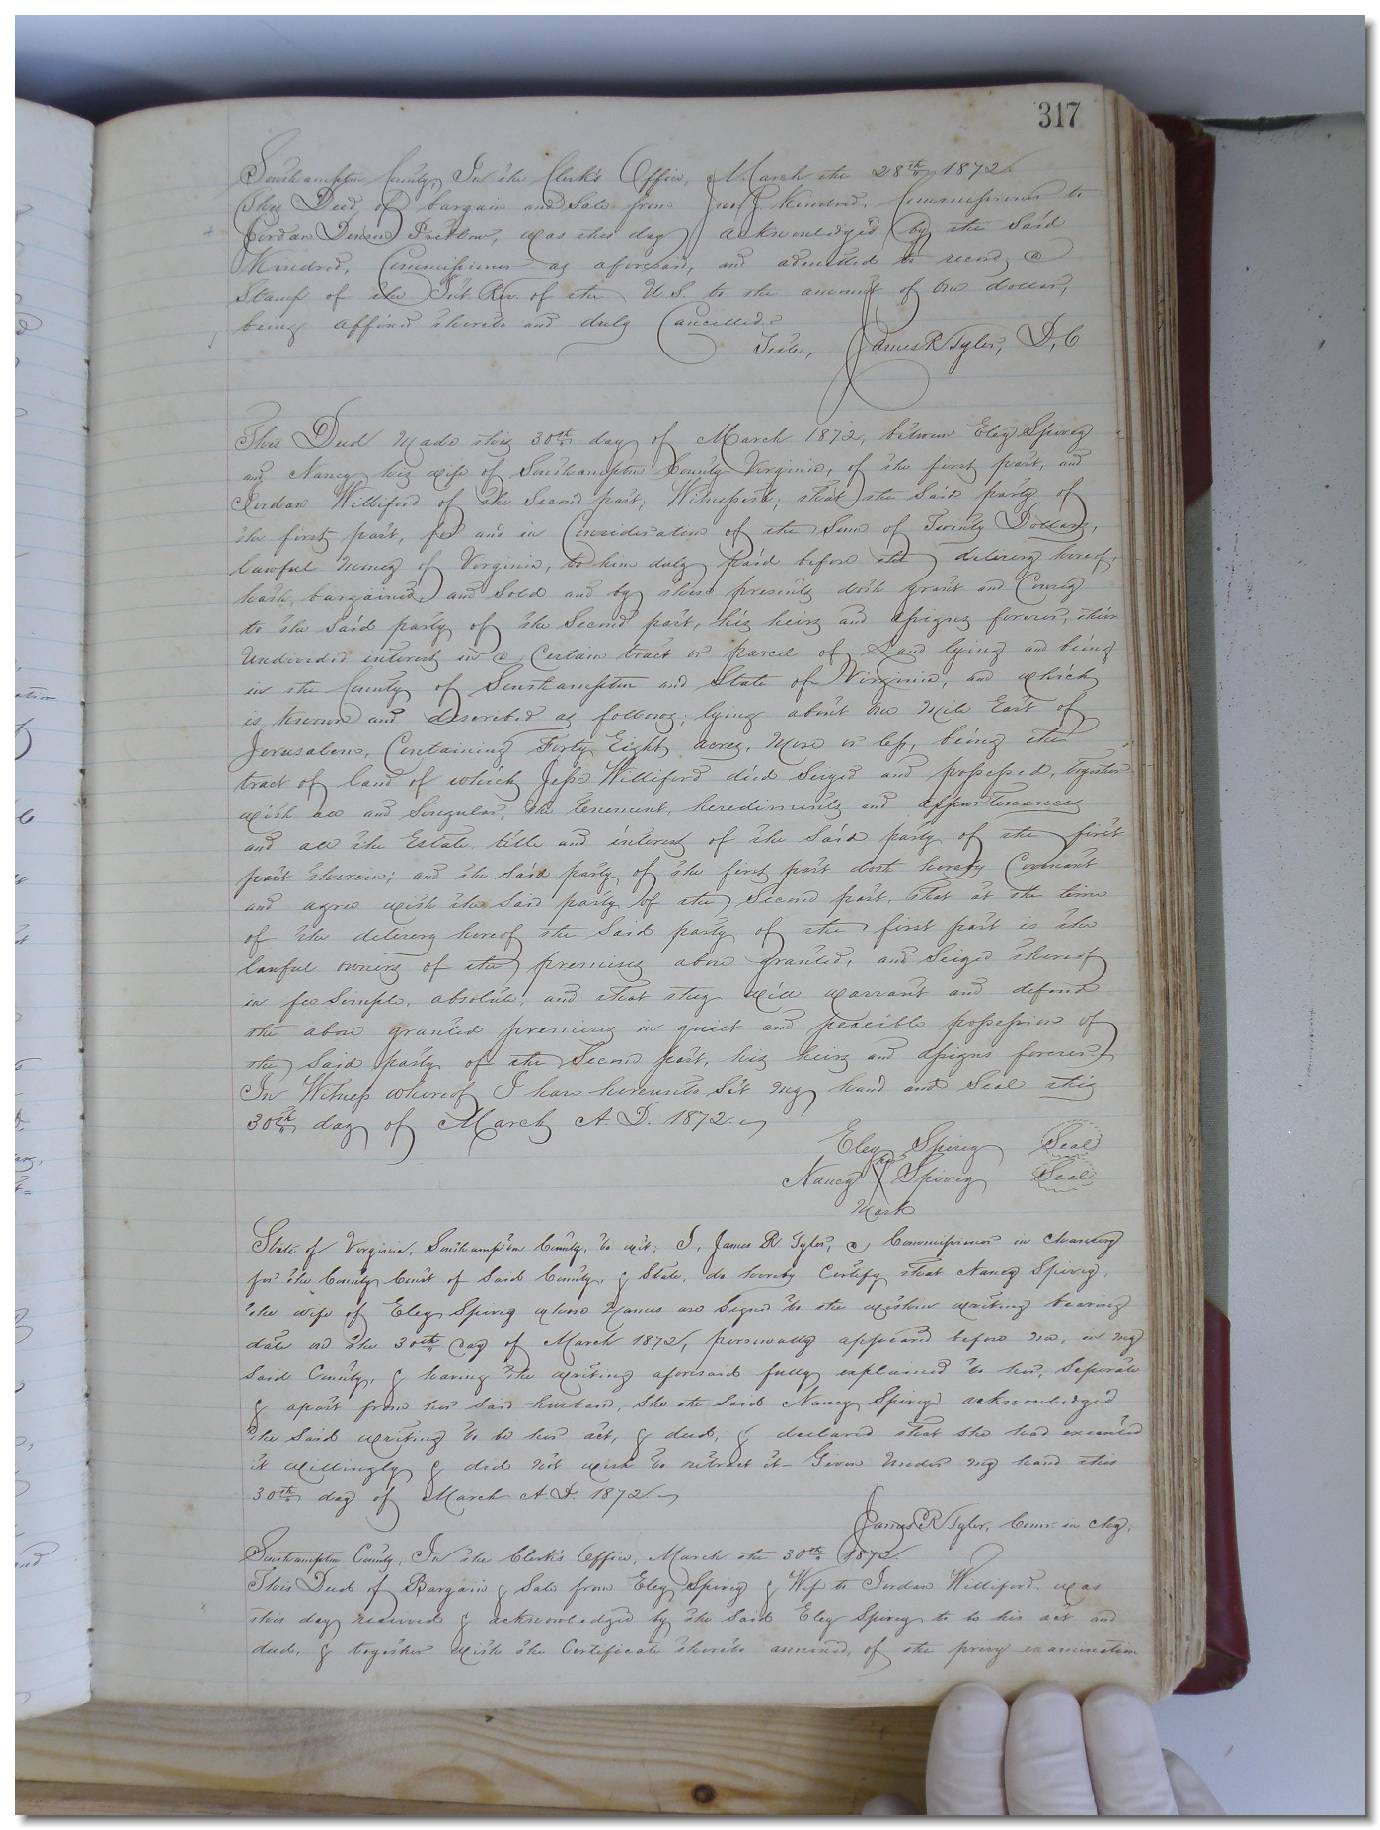 317
Southampton County, In the Clerk's Office, March the 28th 1872
This Deed of bargain and Sale from Kindred, Commissioner to
Jordan Denson Pretlow, was this day acknowledged by the Said
Kindred, Commissioner as aforesaid, and admitted to record, a
Stamp of the Int. Rev. of the U.S. to the amount of one dollar,
being affixed thereto and duly Cancelled.
Teste, James R Tyler, D, C
This Deed Made this 30th day of March 1872, between Eley Spivey
and Nancy his wife of Southampton County Virginia, of the first part, and
Jordan Williford of the Second part, Witnesseth, that the Said party of
the first part, for and in Consideration of the Sum of Twenty Dollars,
lawful money of Virginia, to him duly paid before the delivery hereof,
hath, bargained, and Sold and by these presents doth grant and Convey
to the Said party of the Second part, his heirs and assigns forever, their
Undivided interest in a Certain tract or parcel of Land lying and being
in the County of Southampton and State of Virginia, and which
is known and described as follows; lying about one Mile East of
Jerusalem, Containing Forty Eight acres, More or less, being the
tract of land of which Jesse Williford died Seized and possessed, together
with all and Singular, the tenement, herediments and appurtenances
and all the Estate, title and interest of the Said party of the first
part therein; and the Said party of the first part doth hereby Covenant
and agree with the Said party of the Second part, that at the time
of the delivery hereof the Said party of the first part is the
lawful owners of the premises above granted, and Seized thereof
in fee Simple, absolute, and that they will warrant and defend
the above granted premises in quiet and peacible possession of
the Said party of the Second part, his heirs and assigns forever
In Witness whereof I have hereunto Set my hand and Seal this
30th day of March A.D. 1872.
Eley Spivey Seal
her
Nancy X Spivey Seal
Mark
State of Virginia, Southampton County, to wit: I, James R Tyler, a Commissioner in Chancery
for the County Court of Said County, & State, do hereby Certify that Nancy Spivey,
the wife of Eley Spivey whose Names are Signed to the within writing bearing
date on the 30th day of March 1872, personally appeared before me, in my
Said County, & having the writing aforesaid fully explained to her, Seperate
& apart from her Said husband, She the Said Nancy Spivey acknowledged
the Said writing to be her act, & deed, & declared that She had executed
it willingly & did not wish to retract it - Given Under my hand this
30th day of March A.D. 1872.
James R Tyler, Comr in Chy.
Southampton County, In the Clerk's Office, March the 30th 1872.
This Deed of Bargain & Sale from Eley Spivey & Wife to Jordan Williford was
this day received & acknowledged by the Said Eley Spivey to be his act and
deed, & together with the Certificate thereto annexed, of the privy examination